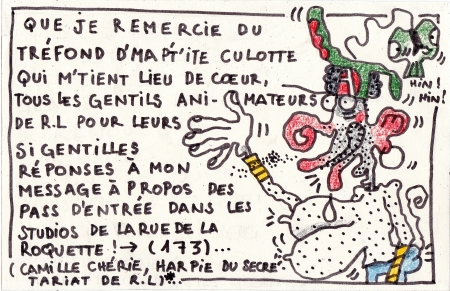 QUE JE REMERCIE DU
TRÉFOND D'MA PT'ITE CULOTTE
QUI M'TIENT LIEU DE CŒUR,
TOUS LES GENTILS ANI-MATEURS
DE R.L POUR LEURS
SI GENTILLES
RÉPONSES À MON
MESSAGE À PROPOS DES
PASS D'ENTRÉE DANS LES
STUDIOS DE LA RUE DE LA
ROQUETTE ! → (173)...
(CAMILLE CHÉRIE, HARPIE DU SECRÉ-
TARIAT DE R.L)*...
HIN!
HIN!